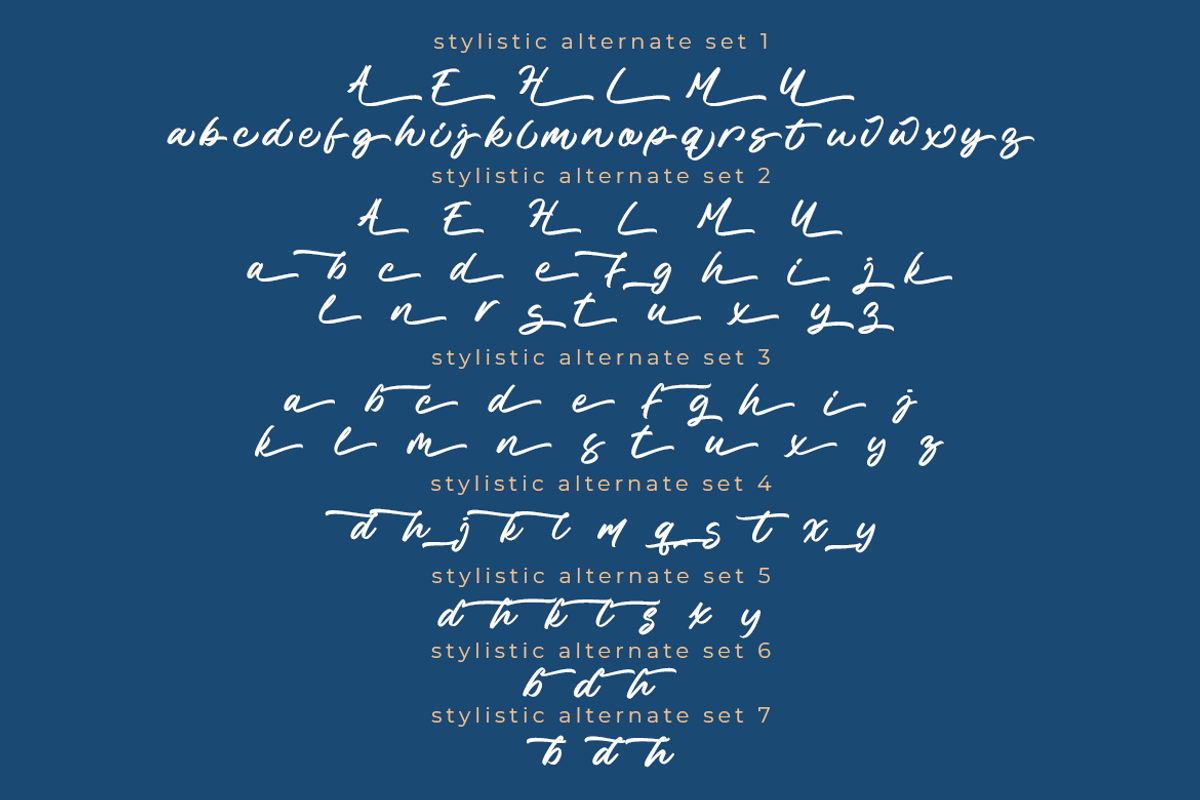 stylistic alternate set 1
A E H L M U
abcdefghijklmnopqrstuvwxyz
stylistic alternate set 2
A E H L M U
a b c d e f g h i j k
l n r s t u x y z
stylistic alternate set 3
a b c d e f g h i j
k l m n s t u x y z
stylistic alternate set 4
d h j k l m q s t x y
stylistic alternate set 5
d h k l s x y
stylistic alternate set 6
b d h
stylistic alternate set 7
b d h